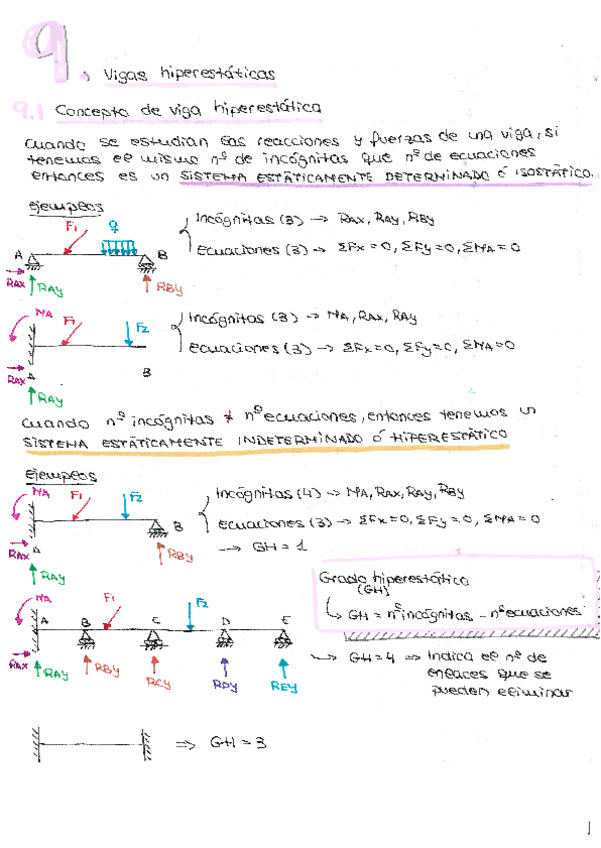 9. Vigas hiperestáticas
9.1 Concepto de viga hiperestática
Cuando se estudian las reacciones y fuerzas de una viga, si
tenemos el mismo nº de incógnitas que nº de ecuaciones
entonces es un SISTEMA ESTÁTICAMENTE DETERMINADO Ó ISOSTÁTICO.
ejemplos
F1 q
A B
RAX RAY RBY
Incógnitas (3) → RAX, RAY, RBY
Ecuaciones (3) → ΣFx = 0, ΣFy = 0, ΣMA = 0
MA F1 F2
RAX A B
RAY
Incógnitas (3) → MA, RAX, RAY
Ecuaciones (3) → ΣFx = 0, ΣFy = 0, ΣMA = 0
Cuando nº incógnitas ≠ nº ecuaciones, entonces tenemos un
SISTEMA ESTÁTICAMENTE INDETERMINADO Ó HIPERESTÁTICO
ejemplos
MA F1 F2
B
RAX A RBY
RAY
Incógnitas (4) → MA, RAX, RAY, RBY
Ecuaciones (3) → ΣFx = 0, ΣFy = 0, ΣMA = 0
→ GH = 1
Grado hiperestático
(GH)
↳ GH = nº incógnitas - nº ecuaciones
MA F1 F2
A B C D E
RAX RAY RBY RCY RDY REY
↳ GH = 4 ⇒ Indica el nº de
enlaces que se
pueden eliminar
⇒ GH = 3
1